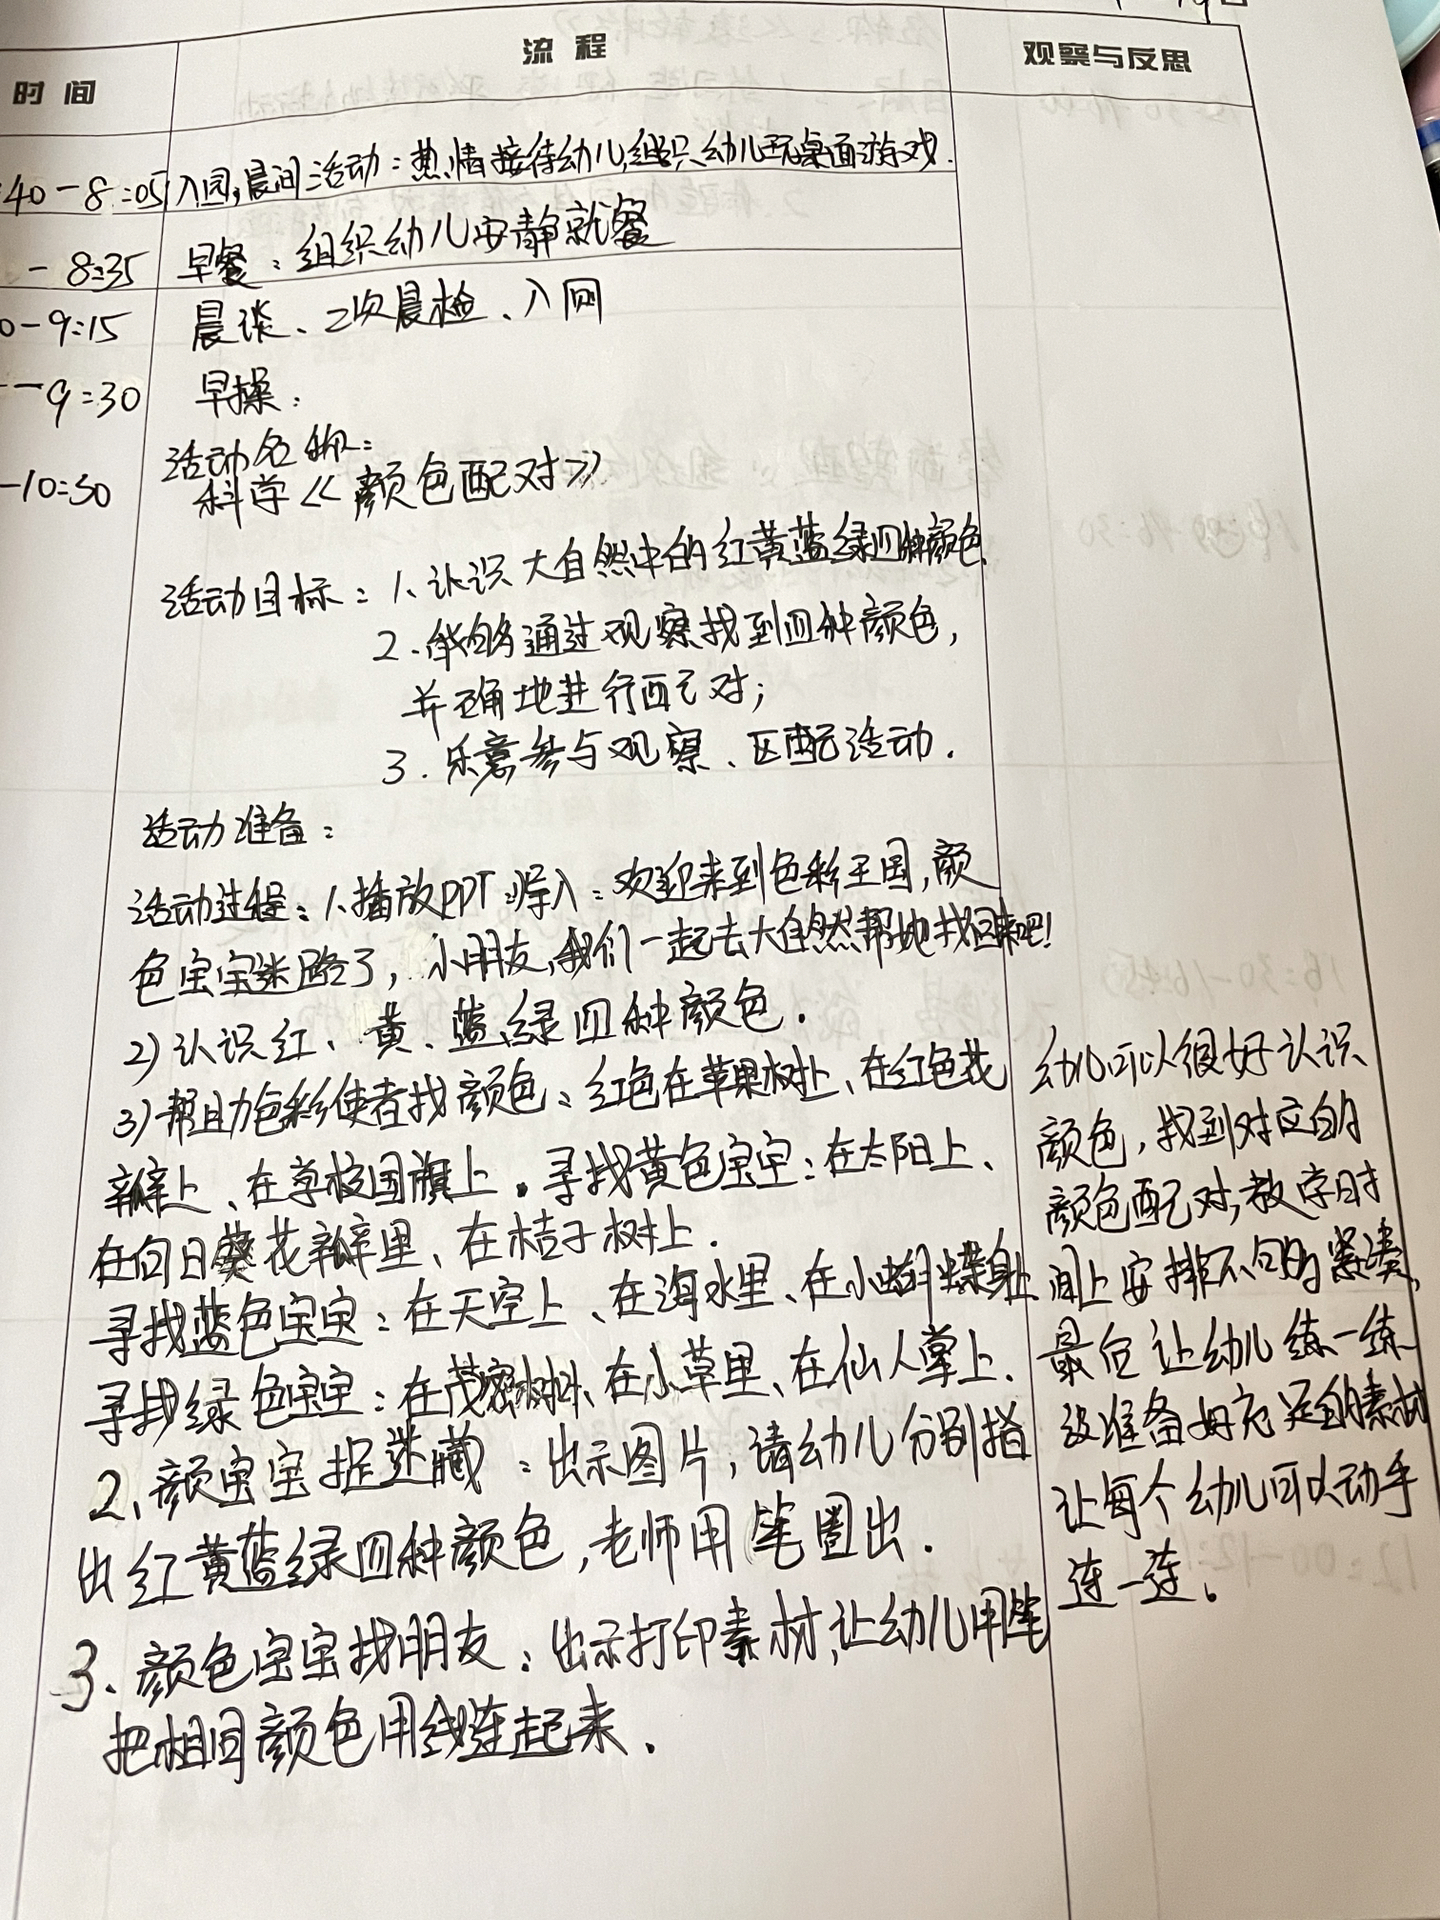 时间 流程 观察与反思
40-8:05 入园,晨间活动:热情接待幼儿,组织幼儿玩桌面游戏.
-8:35 早餐:组织幼儿安静就餐
0-9:15 晨谈、2次晨检、入厕
-9:30 早操:
活动名称:
-10:30 科学《颜色配对》
活动目标:1、认识大自然中的红黄蓝绿四种颜色.
2.能够通过观察找到四种颜色,
并正确地进行配对;
3.乐意参与观察、匹配活动.
活动准备:
活动过程:1、播放PPT导入:欢迎来到色彩王国,颜
色宝宝迷路了,小朋友,我们一起去大自然帮他找回来吧!
2)认识红、黄、蓝、绿四种颜色.
3)帮助色彩使者找颜色:红色在苹果树上、在红色花
瓣上、在学校国旗上.寻找黄色宝宝:在太阳上、
在向日葵花瓣里、在桔子树上.
寻找蓝色宝宝:在天空上、在海水里、在小蝴蝶身上
寻找绿色宝宝:在茂密树林、在小草里、在仙人掌上.
2、颜宝宝捉迷藏:出示图片,请幼儿分别指
出红黄蓝绿四种颜色,老师用笔圈出.
3、颜色宝宝找朋友:出示打印素材,让幼儿用笔
把相同颜色用线连起来.
幼儿可以很好认识
颜色,找到对应的
颜色配对,教学时
间上安排不够紧凑,
最后让幼儿练一练
没准备好充足的素材
让每个幼儿可以动手
连一连。